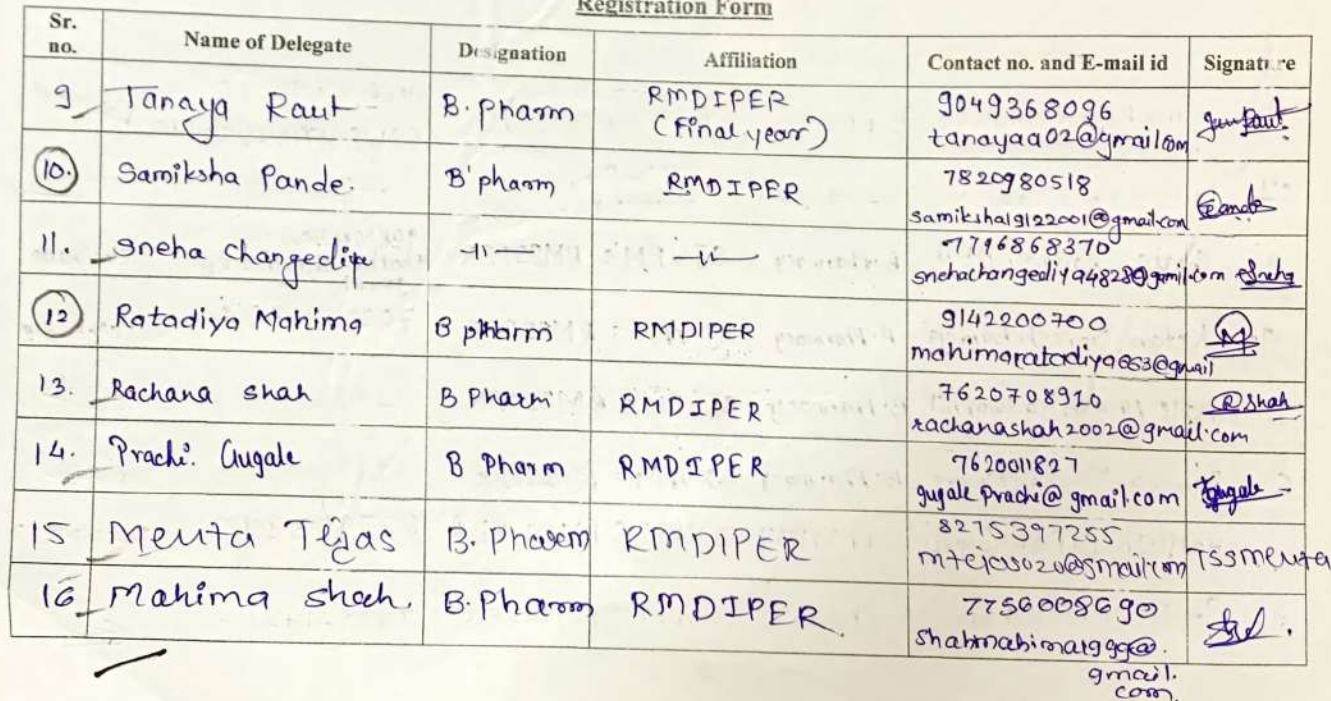 Registration Form
Sr. no. Name of Delegate Designation Affiliation Contact no. and E-mail id Signature
9 Tanaya Raut B. pharm RMDIPER (final year) 9049368096
tanayaa02@gmail.com Raut
10. Samiksha Pande. B' pharm RMDIPER 7820980518
samiksha19122001@gmail.com Pande
11. Sneha Changediya -11- -11- 7796868370
snehachangediya4828@gmail.com Sneha
12 Ratadiya Mahima B pharm RMDIPER 9142200700
mahimaratadiya663@gmail M
13. Rachana shah B Pharm RMDIPER 7620708910 Rshah
rachanashah2002@gmail.com
14. Prachi. Gugale B Pharm RMDIPER 7620011827
gugale prachi@gmail.com Gugale
15 Mehta Tejas B. Pharm RMDIPER 8275397255
mtejas020@gmail.com TSSMehta
16 Mahima shah. B. Pharm RMDIPER. 7756008690
shahmahima1999@.
gmail.
com.